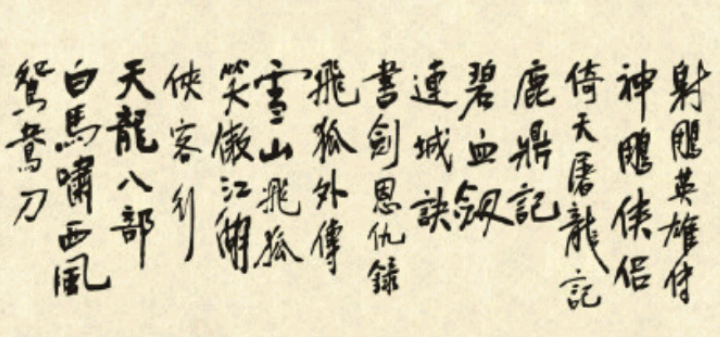 射鵰英雄传
神鵰侠侣
倚天屠龍記
鹿鼎記
碧血劔
連城訣
書劍恩仇錄
飛狐外傳
雪山飛狐
笑傲江湖
俠客行
天龍八部
白馬嘯西風
鴛鴦刀